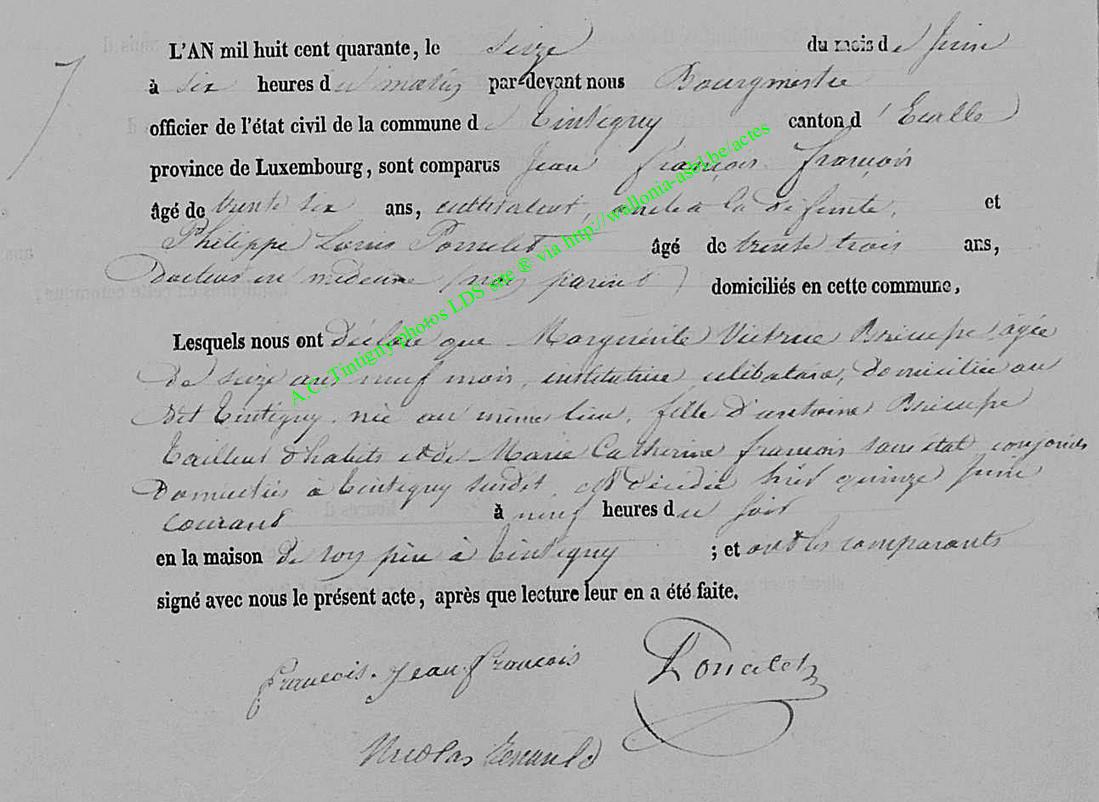 7
L'AN mil huit cent quarante, le seize du mois de Juin
à six heures du matin par-devant nous Bourgmestre
officier de l'état civil de la commune de Tintigny canton d'Etalle
province de Luxembourg, sont comparus Jean françois françois
âgé de trente six ans, cultivateur, oncle à la défunte, et
Philippe Louis âgé de trente trois ans,
Docteur en médecine (non parent) domiciliés en cette commune,
Lesquels nous ont déclaré que Marguerite Victoire âgée
de seize ans neuf mois, institutrice, célibataire, domiciliée au
dit Tintigny, née au même lieu, fille d'antoine
Tailleur d'habits et de Marie Catherine françois sans état conjoints
Domiciliés à Tintigny susdit, est décédée hier quinze juin
courant à neuf heures du soir
en la maison de son père à Tintigny ; et ont les comparants
signé avec nous le présent acte, après que lecture leur en a été faite.
françois. Jean françois
Nicolas
A.C. Tintigny photos LDS site ® via http://wallonia-asbl.be/actes